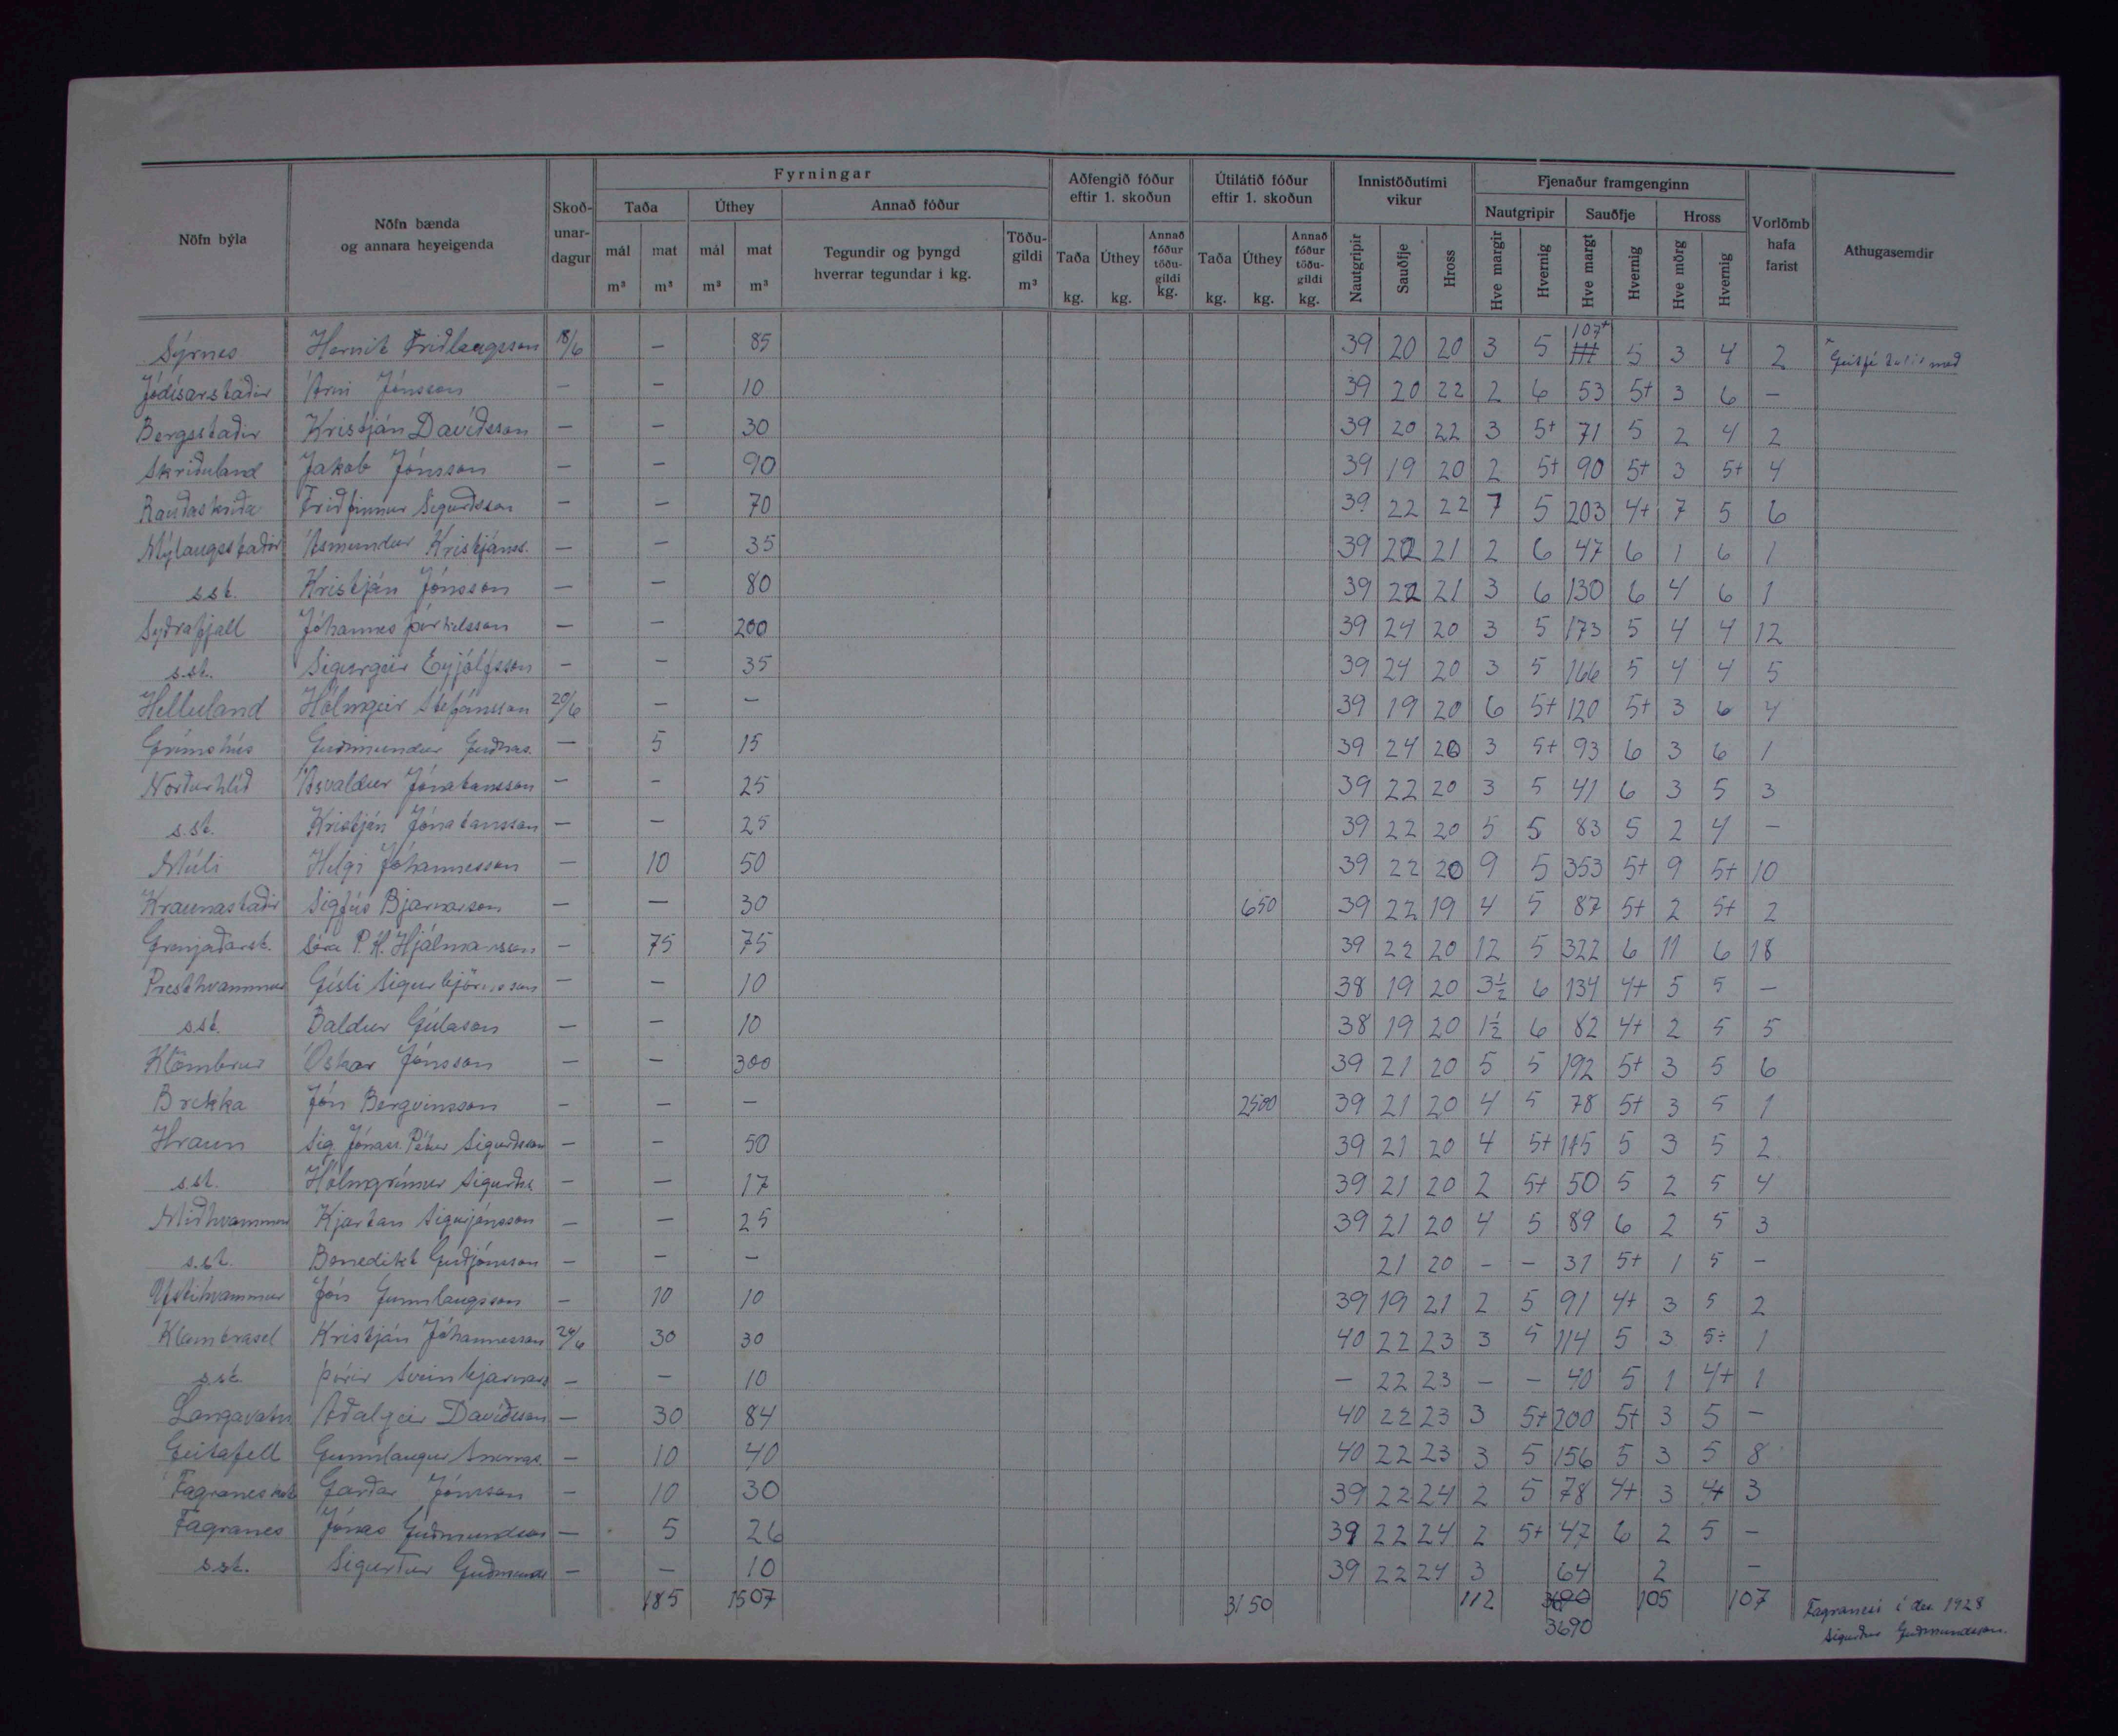 Fyrningar
Aðfengið fóður eftir 1. skoðun
Útilátið fóður eftir 1. skoðun
Innistöðutími vikur
Fjenaður framgenginn
Nöfn býla
Nöfn bænda og annara heyeigenda
Skoð-unar-dagur
Taða
Úthey
Annað fóður
Nautgripir
Sauðfje
Hross
Vorlömb hafa farist
Athugasemdir
mál m³ mat m³ mál m³ mat m³
Tegundir og þyngd hverrar tegundar í kg.
Töðu-gildi m³
Taða kg. Úthey kg. Annað fóður töðu-gildi kg.
Taða kg. Úthey kg. Annað fóður töðu-gildi kg.
Nautgripir Sauðfje Hross
Hve margir Hvernig Hve margt Hvernig Hve mörg Hvernig
Sýrnes Hernit Friðlaugsson 18/6 — 85 39 20 20 3 5 107+ 5 3 4 2 + Geitfé talið með
Jódísarstaðir Árni Jónsson — — 10 39 20 22 2 6 53 5+ 3 6 —
Bergsstaðir Kristján Davíðsson — — 30 39 20 22 3 5+ 71 5 2 4 2
Skriðuland Jakob Jónsson — — 90 39 19 20 2 5+ 90 5+ 3 5+ 4
Rauðaskriða Friðfinnur Sigurðsson — — 70 39 22 22 7 5 203 4+ 7 5 6
Mýlaugsstaðir Ásmundur Kristjánss. — — 35 39 22 21 2 6 47 6 1 6 1
s.st. Kristján Jónsson — — 80 39 22 21 3 6 130 6 4 6 1
Syðrafjall Jóhannes Þorkelsson — — 200 39 24 20 3 5 173 5 4 4 12
s.st. Sigurgeir Eyjólfsson — — 35 39 24 20 3 5 166 5 4 4 5
Helluland Hólmgeir Stefánsson 20/6 — — 39 19 20 6 5+ 120 5+ 3 6 4
Grímshús Guðmundur Guðnas. — 5 15 39 24 20 3 5+ 93 6 3 6 1
Norðurhlíð Ásvaldur Jónatansson — — 25 39 22 20 3 5 41 6 3 5 3
s.st. Kristján Jónatansson — — 25 39 22 20 5 5 83 5 2 4 —
Múli Helgi Jóhannesson — 10 50 39 22 20 9 5 353 5+ 9 5+ 10
Kraunastaðir Sigfús Bjarnarson — — 30 650 39 22 19 4 5 87 5+ 2 5+ 2
Grenjaðarst. Séra P. H. Hjálmarsson — 75 75 39 22 20 12 5 322 6 11 6 18
Presthvammur Gísli Sigurbjörnsson — — 10 38 19 20 3½ 6 134 4+ 5 5 —
s.st. Baldur Gíslason — — 10 38 19 20 1½ 6 82 4+ 2 5 5
Klömbrur Óskar Jónsson — — 300 39 21 20 5 5 192 5+ 3 5 6
Brekka Jón Bergvinsson — — — 2500 39 21 20 4 5 78 5+ 3 5 1
Hraun Sig. Jónass. Pétur Sigurðsson — — 50 39 21 20 4 5+ 115 5 3 5 2
s.st. Hólmgrímur Sigurðs. — — 17 39 21 20 2 5+ 50 5 2 5 4
Miðhvammur Kjartan Sigurjónsson — — 25 39 21 20 4 5 89 6 2 5 3
s.st. Benedikt Guðjónsson — — — 21 20 — — 31 5+ 1 5 —
Ystihvammur Jón Gunnlaugsson — 10 10 39 19 21 2 5 91 4+ 3 5 2
Klambrasel Kristján Jóhannesson 24/6 30 30 40 22 23 3 5 114 5 3 5÷ 1
s.st. Þórir Sveinbjarnars — — 10 — 22 23 — — 40 5 1 4+ 1
Langavatn Aðalgeir Davíðsson — 30 84 40 22 23 3 5+ 200 5+ 3 5 —
Geitafell Gunnlaugur Snorras. — 10 40 40 22 23 3 5 156 5 3 5 8
Fagraneskot Garðar Jónsson — 10 30 39 22 24 2 5 78 4+ 3 4 3
Fagranes Jónas Guðmundsson — 5 26 39 22 24 2 5+ 47 6 2 5 —
s.st. Sigurður Guðmunds — — 10 39 22 24 3 64 2 —
185 1507 3150 112 3690 105 107 Fagranesi í des. 1928
3690 Sigurður Guðmundsson.